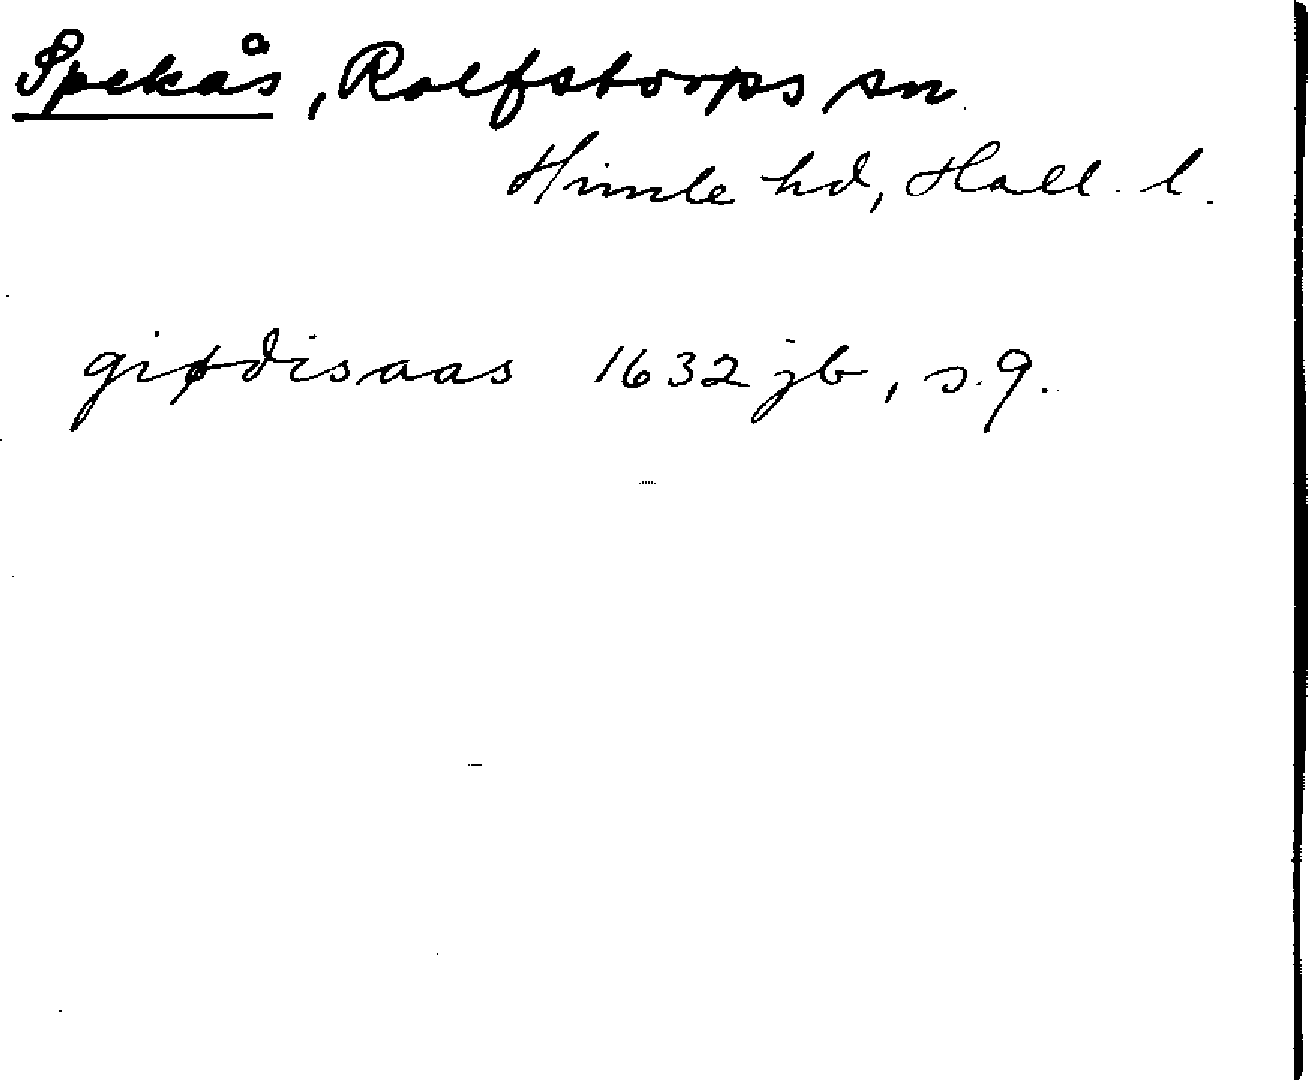 Spekås, Rolfstorps sn
Himle hd, Hall. l.
giødisaas 1632 jb, s. 9.